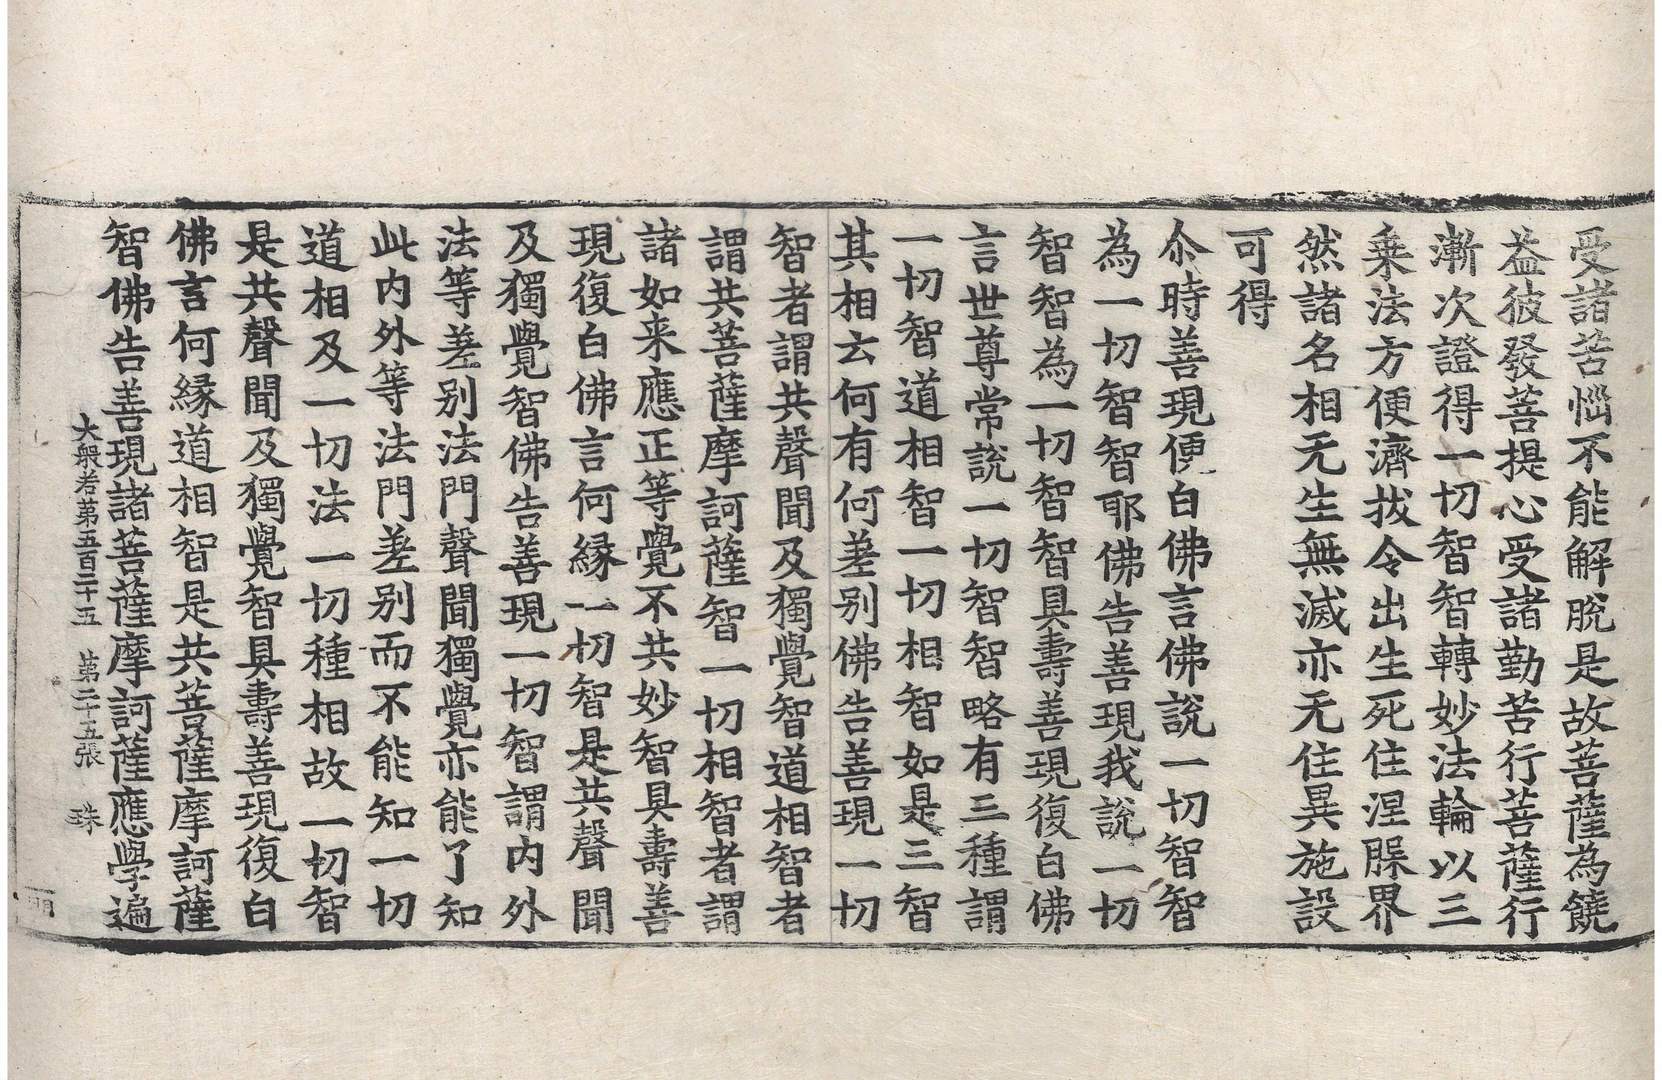 受諸苦惱不能解脫是故菩薩為饒
益彼發菩提心受諸勤苦行菩薩行
漸次證得一切智智轉妙法輪以三
乗法方便濟拔令出生死住涅槃界
然諸名相无生無滅亦无住異施設
可得
尒時善現便白佛言佛說一切智智
為一切智智耶佛告善現我說一切
智智為一切智智具壽善現復白佛
言世尊常說一切智智略有三種謂
一切智道相智一切相智如是三智
其相云何有何差別佛告善現一切
智者謂共聲聞及獨覺智道相智者
謂共菩薩摩訶薩智一切相智者謂
諸如来應正等覺不共妙智具壽善
現復白佛言何緣一切智是共聲聞
及獨覺智佛告善現一切智謂内外
法等差別法門聲聞獨覺亦能了知
此内外等法門差別而不能知一切
道相及一切法一切種相故一切智
是共聲聞及獨覺智具壽善現復白
佛言何緣道相智是共菩薩摩訶薩
智佛告善現諸菩薩摩訶薩應學遍
大般若第五百二十五 第二十五張 珠